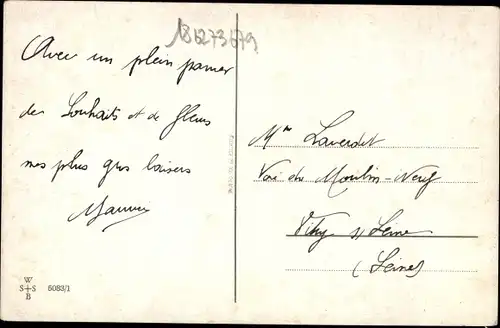 18273679
Avec un plein panier
de Souhaits et de fleurs
mes plus gros baisers
Mme Laverdet
Voie du Moulin-Neuf
Vitry s/ Seine
(Seine)
W
S+S
B
6083/1